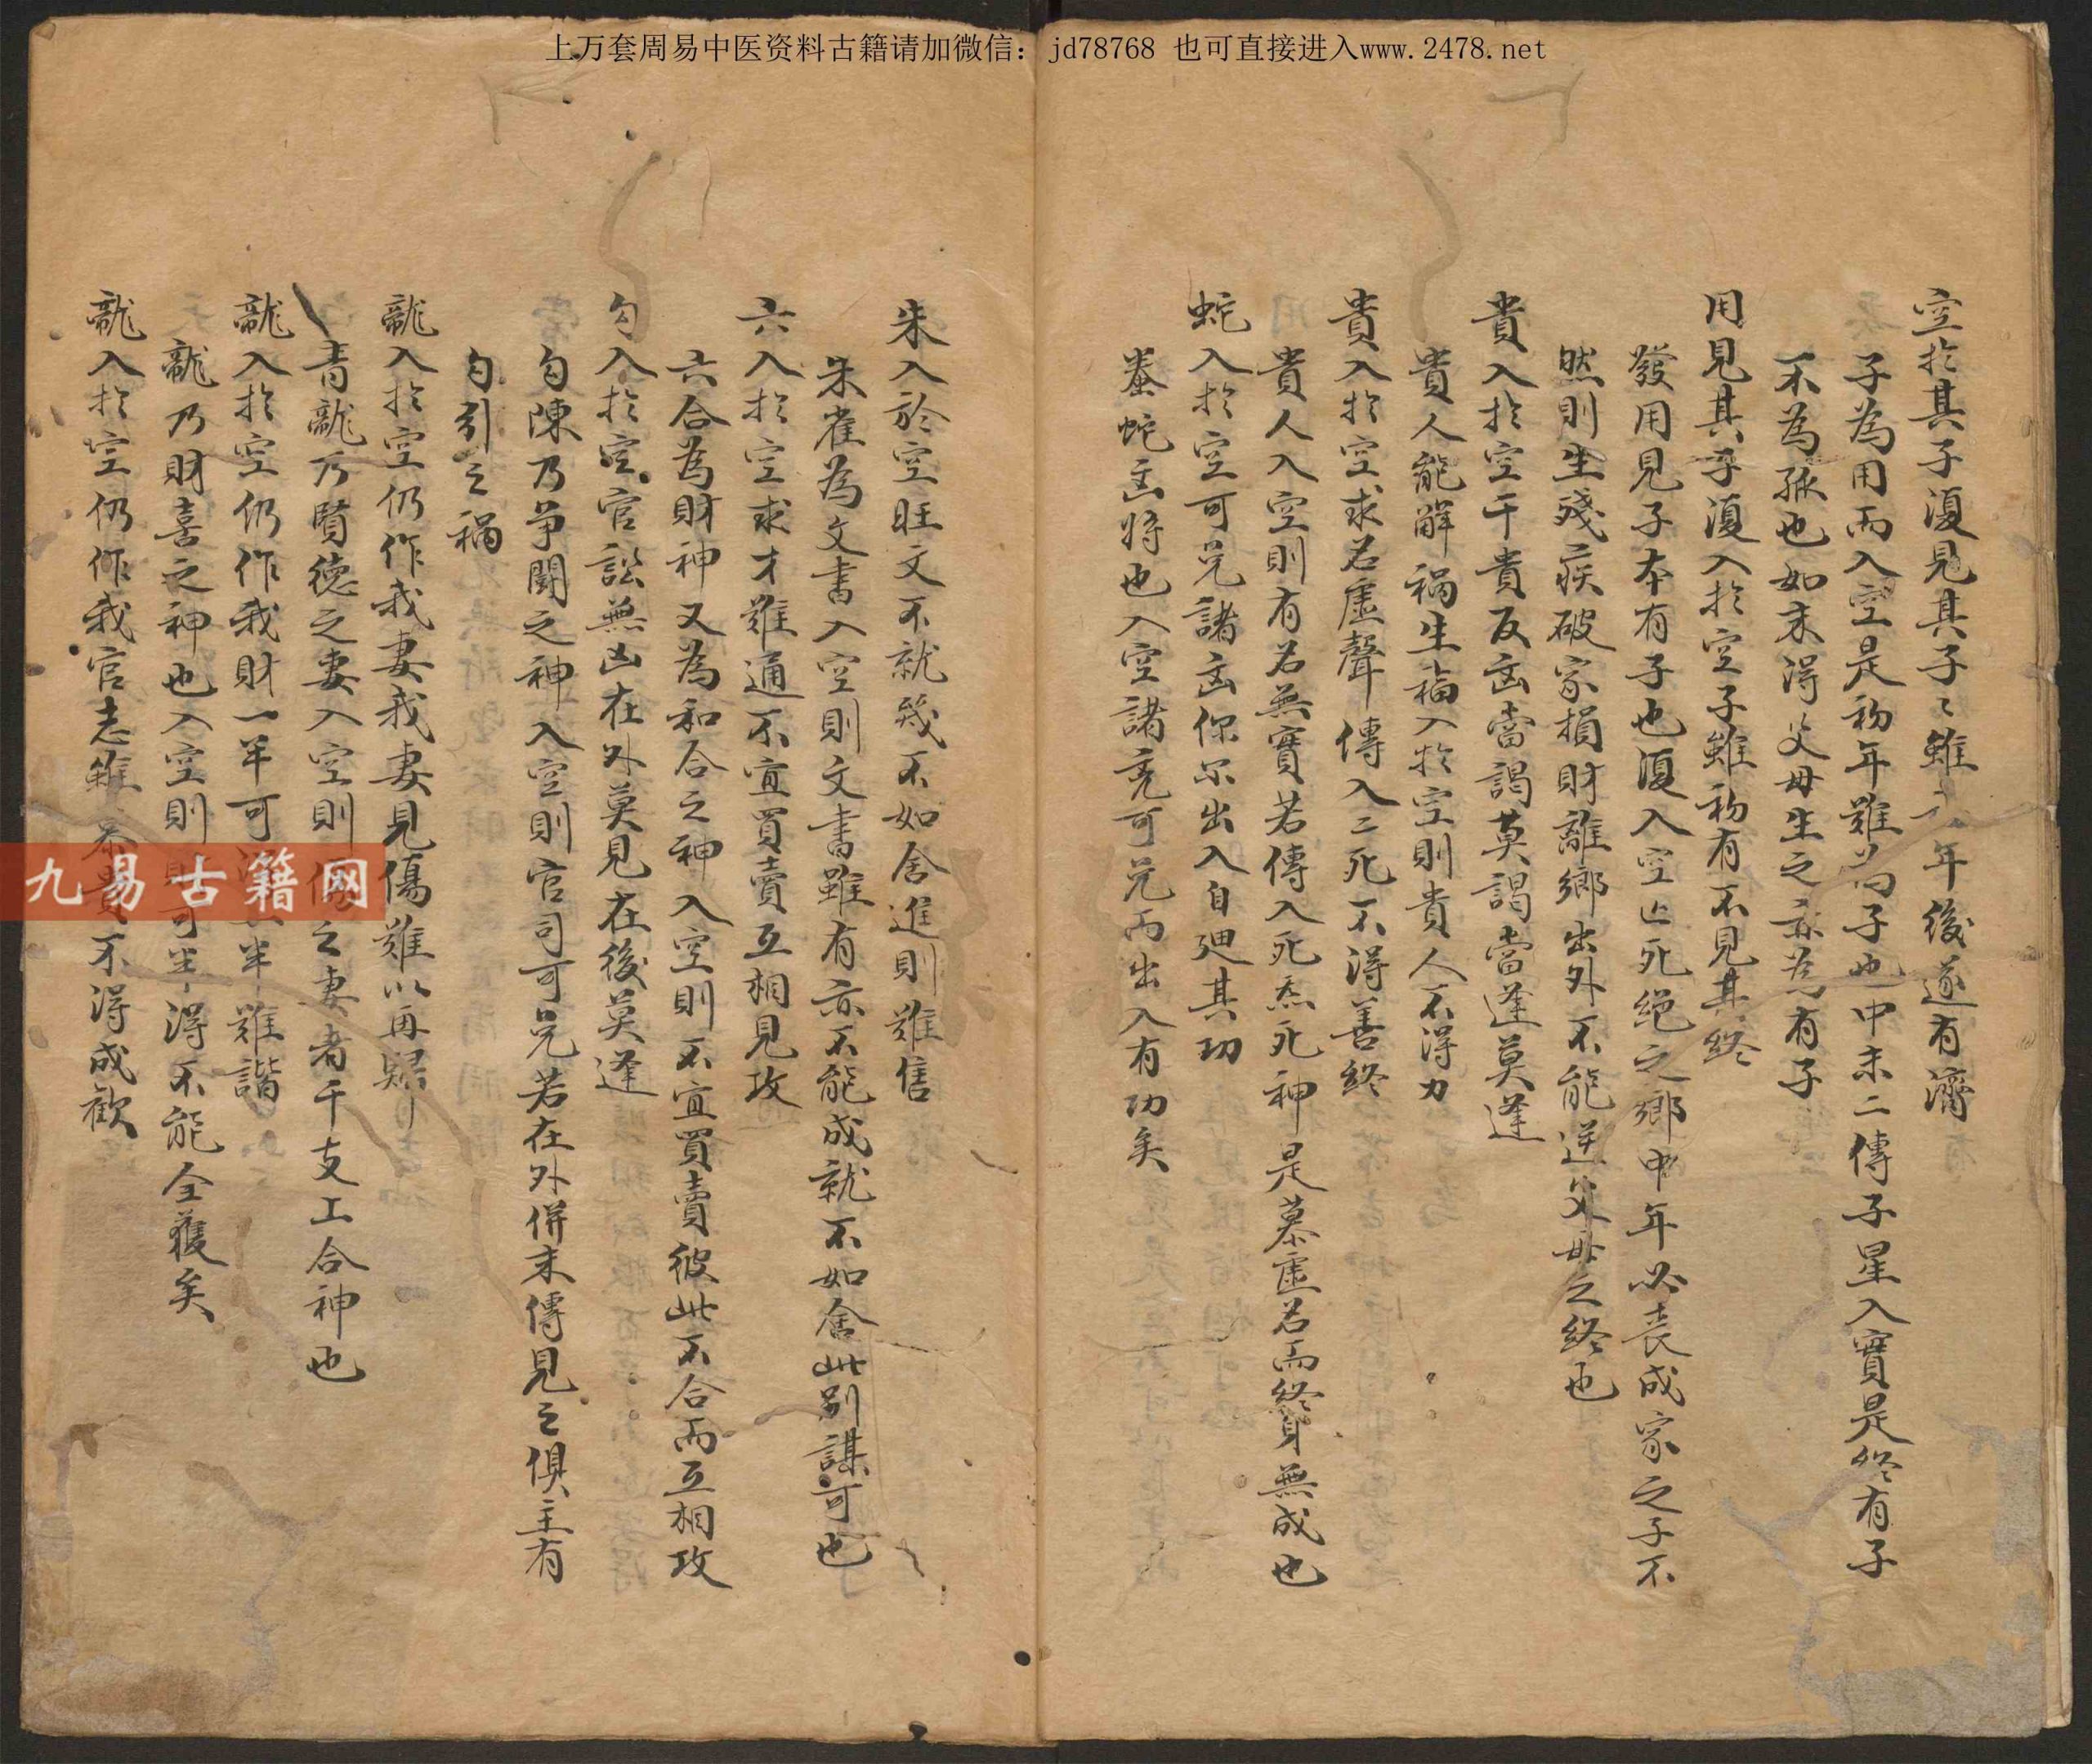 上万套周易中医资料古籍请加微信：jd78768 也可直接进入www.2478.net
空於其子復見其子〻雖年後遂有濟
子為用而入空是初年難為子也中末二傳子星入實是終有子
不為孤也如末得父母生之亦為有子
用見其子復入於空子雖初有不見其終
發用見子本有子也復入空亡死絕之鄉中年必喪成家之子不
然則生殘疾破家損財離鄉出外不能送父母之終也
貴入於空干貴反凶當謁莫謁當逢莫逢
貴人能解禍生福入於空則貴人不得力
貴入於空求名虛聲傳入二死不得善終
貴人入空則有名無實若傳入死炁死神是慕虛名而終身無成也
蛇入於空可免諸凶你尔出入自廸其功
螣蛇凶將也入空諸竞可免而出入有功矣
朱入於空旺文不就幾不如舍進則難售
朱雀為文書入空則文書雖有亦不能成就不如舍此别謀可也
六入於空求才難通不宜買賣互相見攻
六合為財神又為和合之神入空則不宜買賣彼此不合而互相攻
勾入於空官訟無凶在外莫見在後莫逢
勾陳乃争鬭之神入空則官司可免若在外併末傳見之俱主有
勾引之禍
龍入於空仍作我妻我妻見傷難以再歸
青龍乃賢德之妻入空則傷之妻者干支上合神也
龍入於空仍作我財一半可半難諧
龍乃財喜之神也入空則可半得不能全獲矣
龍入於空仍作我官志雖慕貴不得成歡
九易古籍网